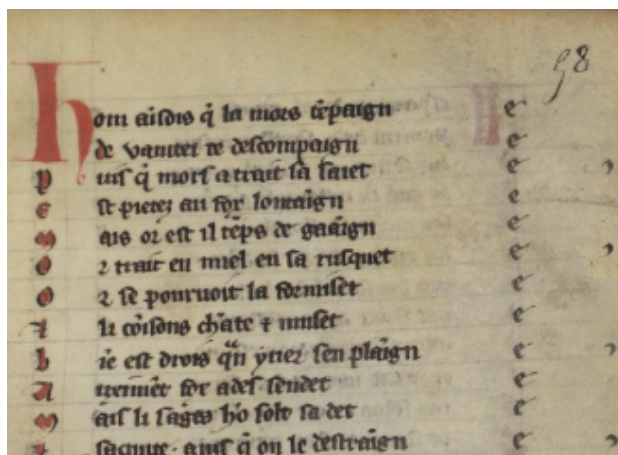 58
hom aîsdis q̃ la mors tẽpaign e
de vanitet te descompaign e
p uis q̃ mors a trait sa saiet e
E st pietez au for lontaign e
m ais or est il tẽps de gaãign e
O r trait eu miel en sa rusquet e
O r se pourvoit la formiset e
l i coîsons chãte et muset e
b iẽ est drois qñ yuer sen plaign e
A
m ais li sages hõ solt sa det e
sacuite · ains q̃ on le destraign e